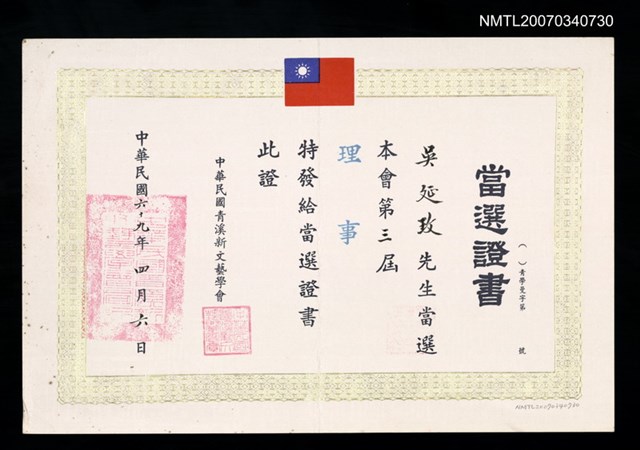 NMTL20070340730
當選證書
（ ）青學受字第 號
吳延玫先生當選
本會第三屆
理事
特發給當選證書
此證
中華民國青溪新文藝學會
中華民國六九年四月六日
NMTL20070340730